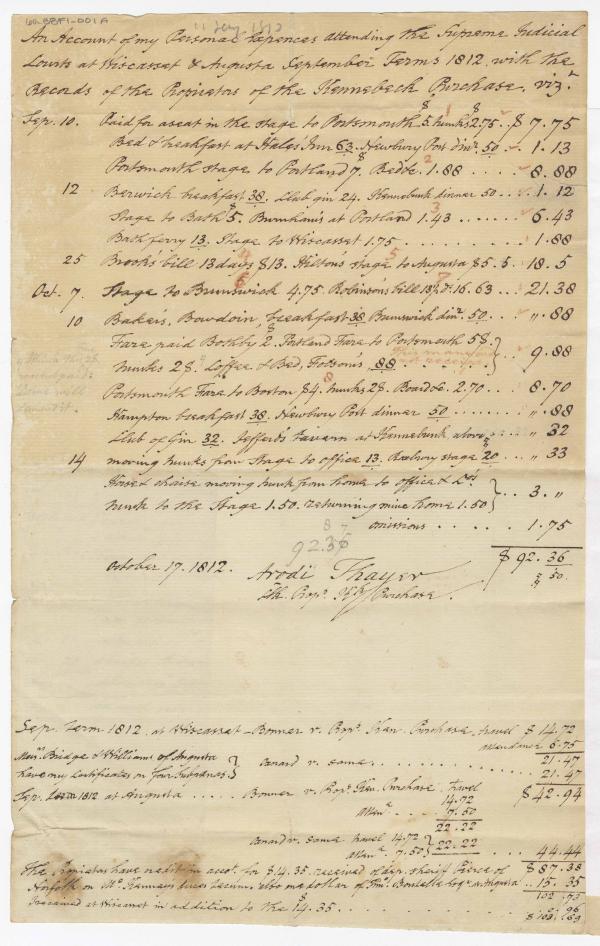 11 Sep 1812
An Account of my Personal Expences attending the Supreme Judicial
Courts at Wiscasset & Augusta September Terms 1812, with the
Records of the Propriators of the Kennebeck Purchase. viz.
Sep. 10. Paid for a seat in the stage to Portsmouth $5. trunks $2.75 - $ 7.75
Bed & breakfast at Hale's Inn 63. Newbury Port dinr. 50 - 1.13
Portsmouth stage to Portland 7. Bed &c. 1.88 .... 8.88
12 Berwick breakfast 38. Club gin 24. Kennebunk dinner 50 .. 1.12
Stage to Bath $5. Burnham's at Portland 1.43 ...... 6.43
Bath ferry 13. Stage to Wiscasset 1.75 ........ 1.88
25 Brook's bill 13 days $13. Hilton's stage to Augusta $5.5. 18.5
Oct. 7. Stage to Brunswick 4.75. Robinson's bill 16.63 ... 21.38
10 Baker's, Bowdoin, breakfast 38 Brunswick dinr. 50 ... " .88
Fare paid Bothby 2. Portland Fare to Portsmouth 5$
trunks 2$. Coffee & Bed, Folsom's, .88 } 9.88
Portsmouth Fare to Boston $4. trunks 2$. Board &c. 2.70 ... 8.70
Hampton breakfast 38. Newbury Port dinner 50 .... " .88
Club of Gin 32. Jefferd's tavern at Kennebunk above ... " 32
14 moving trunks from Stage to office 13. Roxbury stage 20 ... " 33
Horse & chaise moving trunk from home to office &
trunk to the Stage 1.50. returning mine home 1.50 } .. 3. "
omissions ..... 1.75
92.36
$ 92.36
50.
October 17. 1812. Arodi Thayer
Clk. Propr. Kk. Purchase.
Sep. Term 1812. at Wiscasset - Bonner v. Propr. Ken. Purchase, travel $ 14.72
attendance 6.75
21.47
Messrs. Bridge & Williams of Augusta
have my Certificates on four Subpoenas. } Barnard v. same .......... 21.47
$ 42.94
Sep. Term 1812 at Augusta ..... Bonner v. Propr. Ken. Purchase travel
14.72
attene. 7.50
22.22
Barnard v. same travel 14.72
atten. 7.50 } 22.22 .... 44.44
$ 87.38
The Propriators have credit in acct. for $14.35 received of dep. sheriff Pierce of
Norfolk on Mr. also one dollar of Bridge Esqr. Augusta .. 15.35
102.73
I received at Wiscasset in addition to the $14.35 ........ .96
$ 103.69